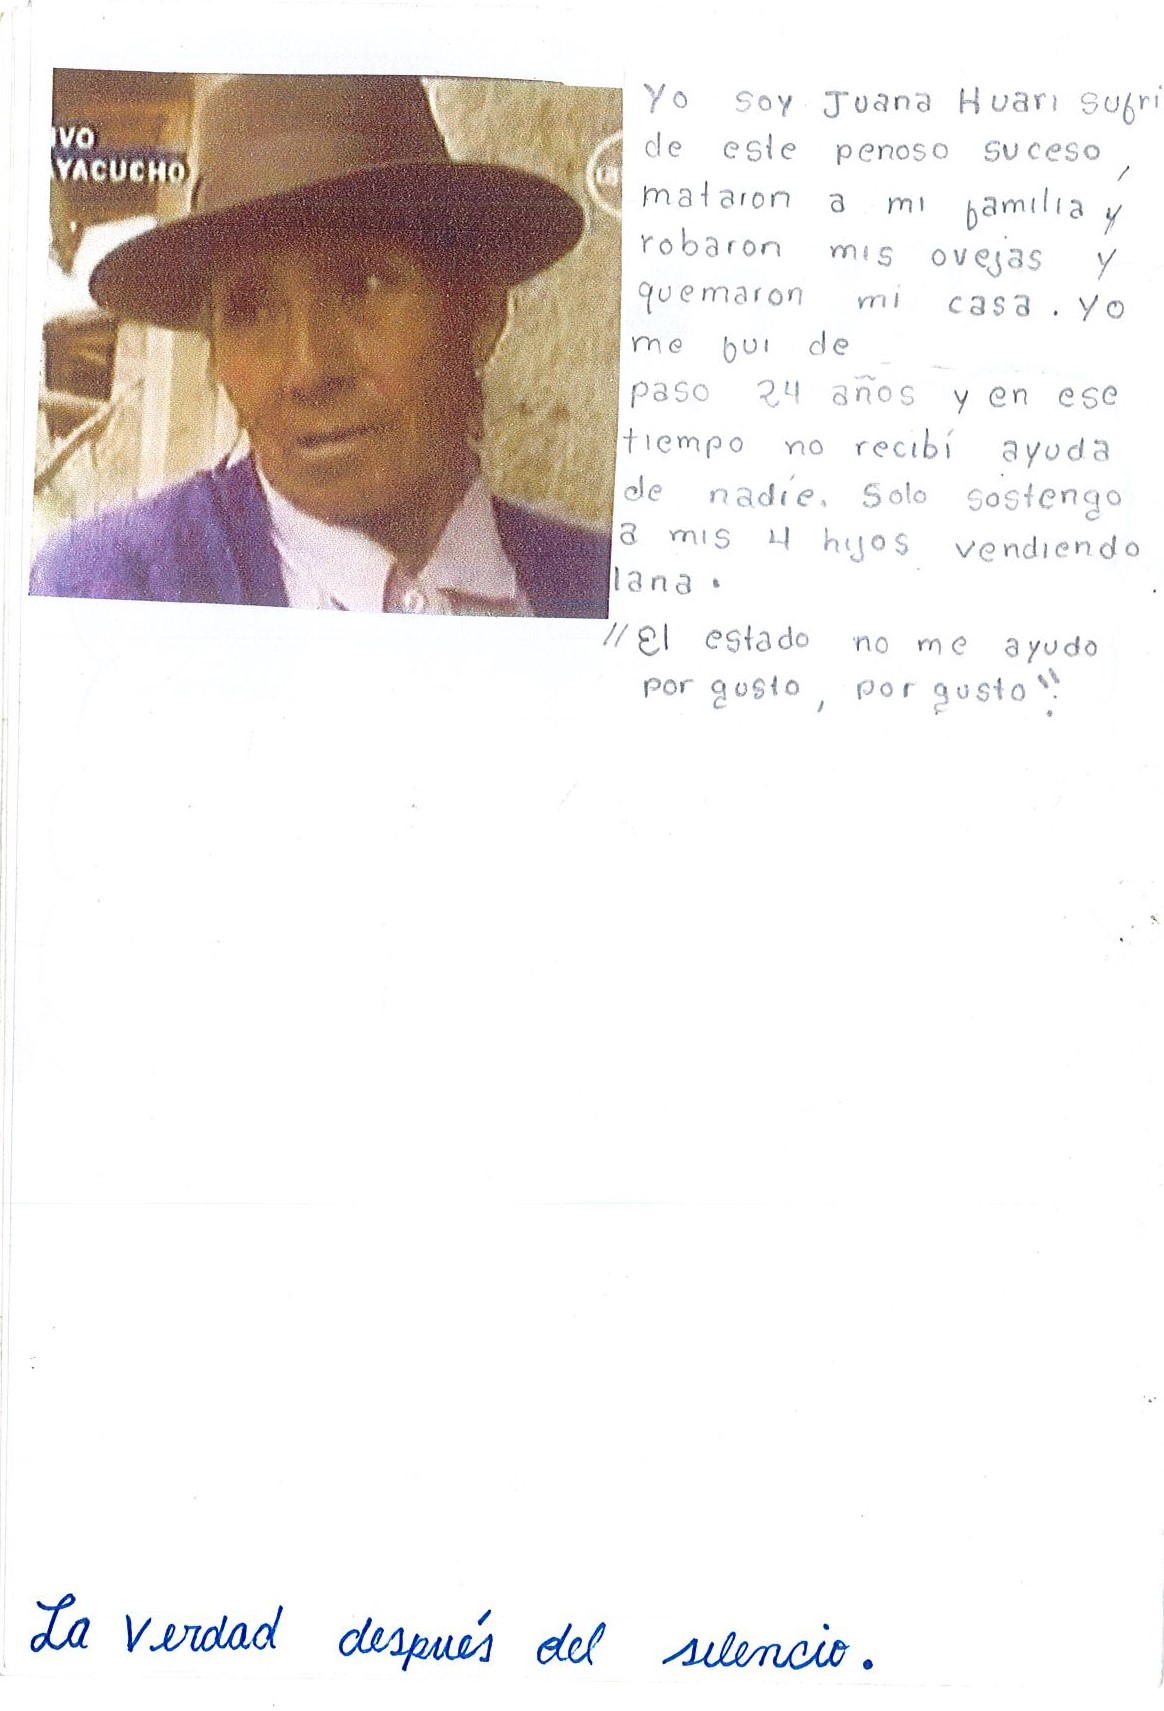 IVO
YACUCHO
Yo soy Juana Huari sufri
de este penoso suceso,
mataron a mi familia y
robaron mis ovejas y
quemaron mi casa. Yo
me fui de
paso 24 años y en ese
tiempo no recibí ayuda
de nadie. Solo sostengo
a mis 4 hijos vendiendo
lana.
"El estado no me ayudo
por gusto, por gusto".
La verdad después del silencio.